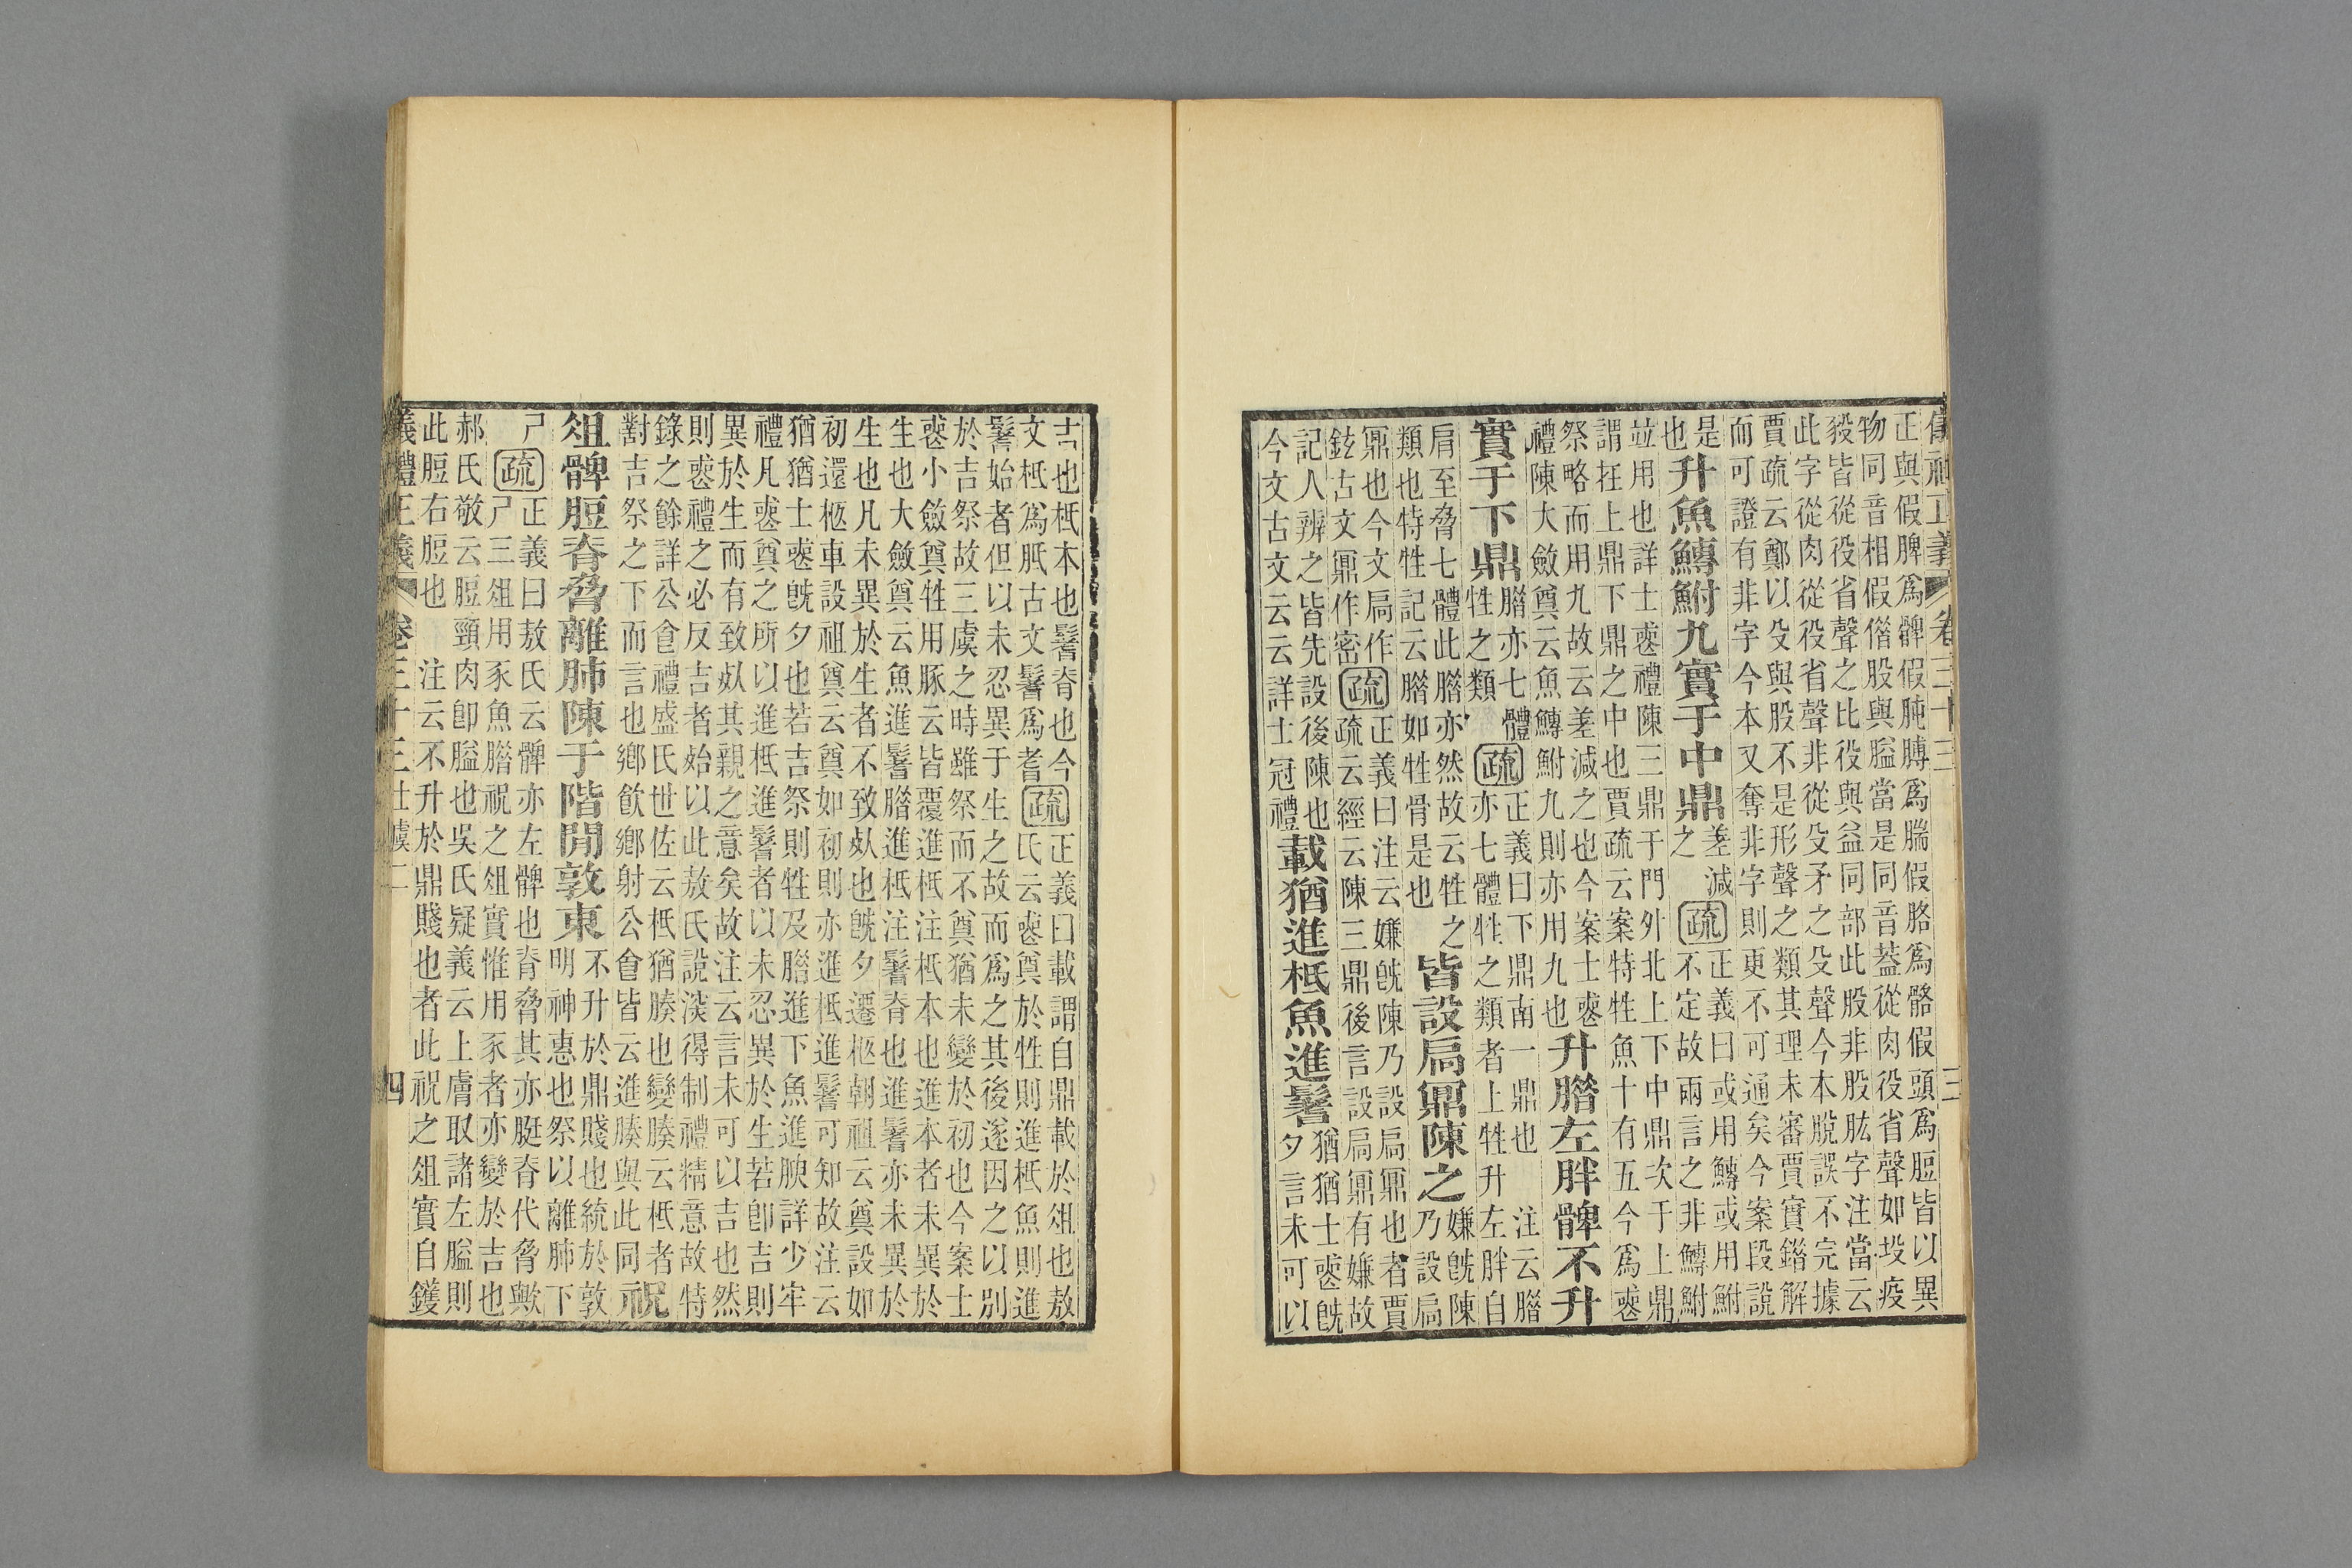 儀禮正義 卷三十三 三
正與假脾爲髀假肫膊爲腨假胳爲骼假頭爲脰皆以異
物同音相假偕股與膉當是同音蓋從肉役省聲如坄疫
毅皆從役省聲之比役與益同部此股非股肱字注當云
此字從肉從役省聲非從殳矛之殳聲今本脫誤不完據
賈疏云鄭以殳與股不是形聲之類其理未審賈實鍇解
而可證有非字今本又奪非字則更不可通矣今案段說
是
也升魚鱄鮒九實于中鼎差減
之疏正義曰或用鱄或用鮒
不定故兩言之非鱄鮒
並用也詳士喪禮陳三鼎于門外北上下中鼎次于上鼎
謂在上鼎下鼎之中也賈疏云案特牲魚十有五今爲喪
祭略而用九故云差減之也今案士喪
禮陳大斂奠云魚鱄鮒九則亦用九也升腊左胖髀不升
實于下鼎腊亦七體
牲之類疏正義曰下鼎南一鼎也 注云腊
亦七體牲之類者上牲升左胖自
肩至脅七體此腊亦然故云牲之
類也特牲記云腊如牲骨是也皆設扃鼏陳之嫌旣陳
乃設扃
鼏也今文扃作
鉉古文鼏作密疏正義曰注云嫌旣陳乃設扃鼏也者賈
疏云經云陳三鼎後言設扃鼏有嫌故
記人辨之皆先設後陳也
今文古文云云詳士冠禮載猶進柢魚進鬐猶猶士喪旣
夕言未可以
吉也柢本也鬐脊也今
文柢爲胝古文鬐爲耆疏正義曰載謂自鼎載於俎也敖
氏云喪奠於牲則進柢魚則進
鬐始者但以未忍異于生之故而爲之其後遂因之以別
於吉祭故三虞之時雖祭而不奠猶未變於初也今案士
喪小斂奠牲用豚云皆覆進柢注柢本也進本者未異於
生也大斂奠云魚進鬐腊進柢注鬐脊也進鬐亦未異於
生也凡未異於生者不致死也旣夕遷柩朝祖云奠設如
初還柩車設祖奠云奠如初則亦進柢進鬐可知故注云
猶猶士喪旣夕也若吉祭則牲及腊進下魚進腴詳少牢
禮凡喪奠之所以進柢進鬐者以未忍異於生若卽吉則
異於生而有致死其親之意矣故注云言未可以吉也然
則喪禮之必反吉者始以此敖氏說淡得制禮精意故特
錄之餘詳公食禮盛氏世佐云柢猶腠也變腠云柢者祝
對吉祭之下而言也鄉飮鄉射公會皆云進腠與此同
俎髀脰脊脅離肺陳于階閒敦東不升於鼎賤也統於敦
明神惠也祭以離肺下
尸
疏正義曰敖氏云髀亦左髀也脊脅其亦脡脊代脅歟
尸三俎用豕魚腊祝之俎實惟用豕者亦變於吉也
郝氏敬云脰頸肉卽膉也吳氏疑義云上膚取諸左膉則
此脰右脰也 注云不升於鼎賤也者此祝之俎實自鑊
儀禮正義 卷三十三 士虞二 四